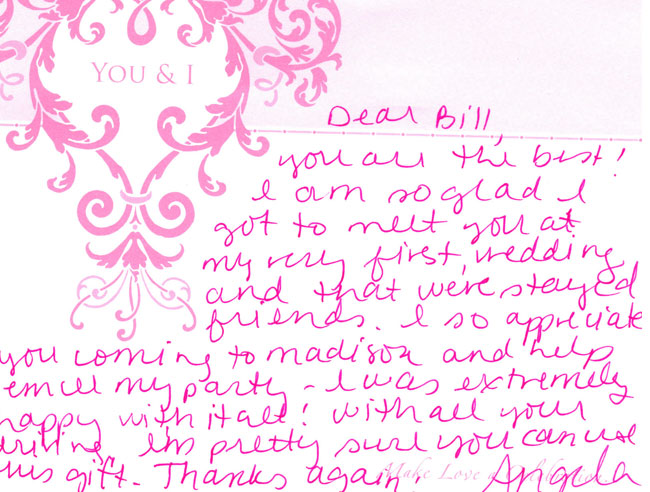 YOU & I
Dear Bill,
you are the best!
I am so glad I
got to meet you at
my very first wedding
and that we're stayed
friends. I so appriciate
you coming to madison and help
emcee my party - I was extremely
happy with it all! with all your
driving I'm pretty sure you can use
this gift. Thanks again!
Angela
Make Love a